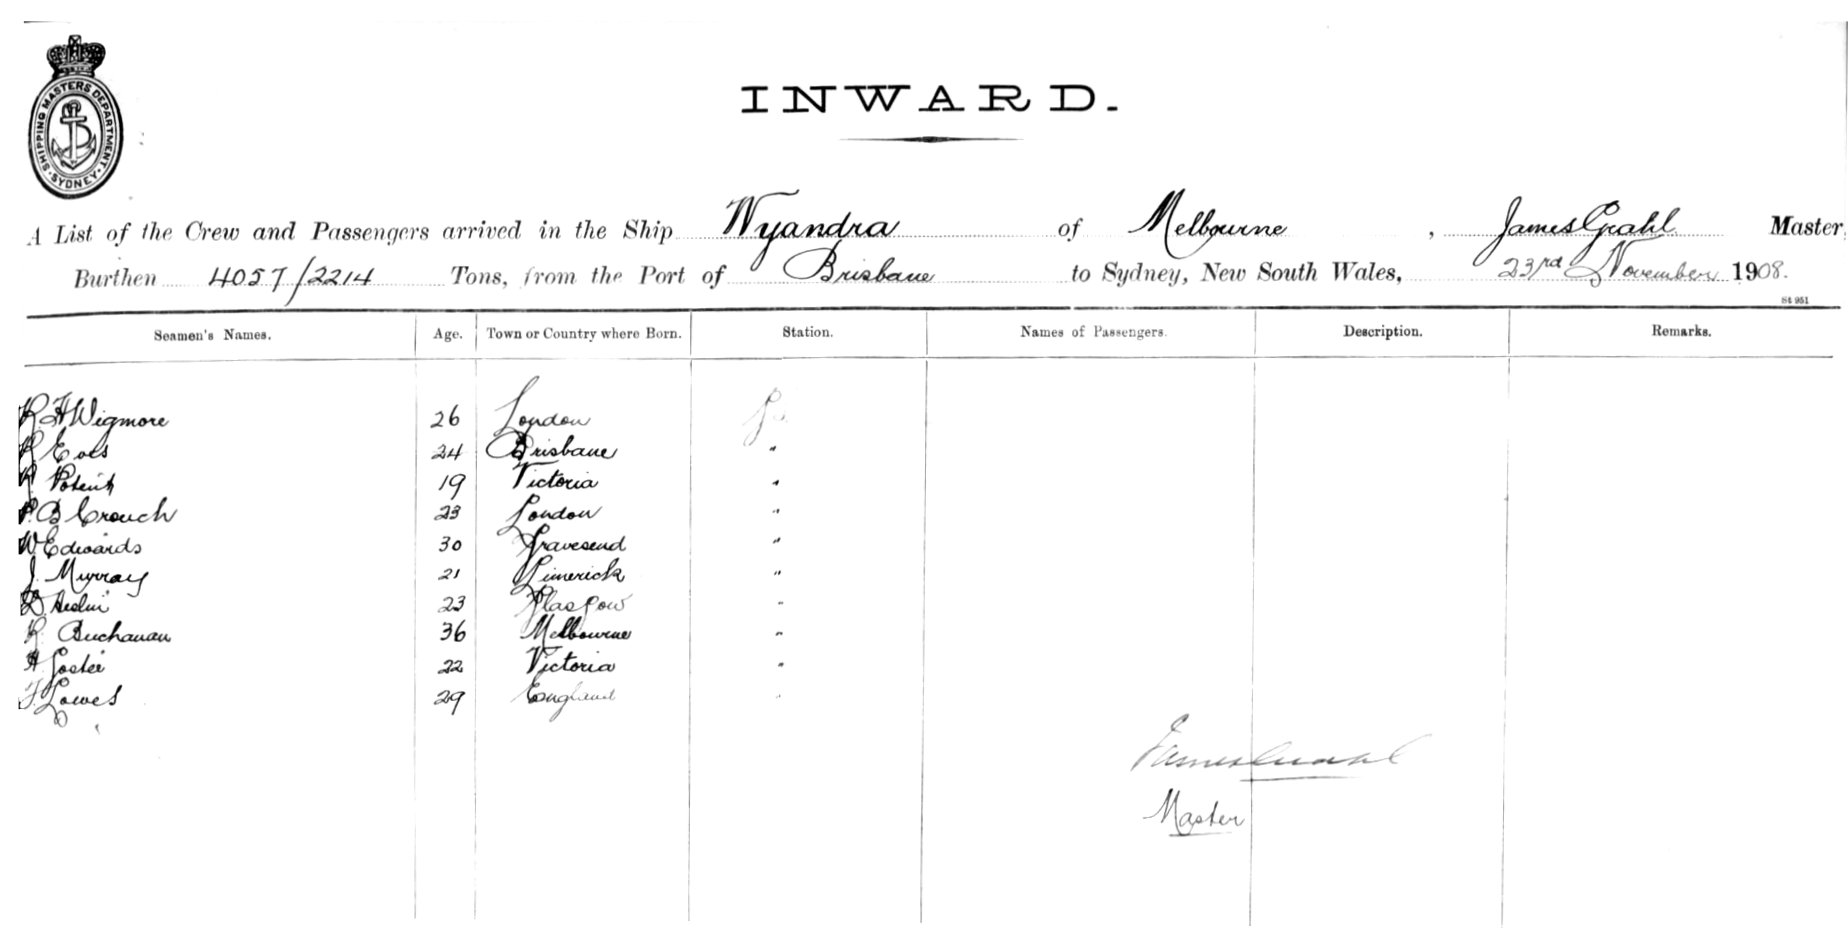 SHIPPING MASTERS DEPARTMENT. SYDNEY
INWARD.
A List of the Crew and Passengers arrived in the Ship Wyandra of Melbourne, James Grahl Master
Burthen 4057/2214 Tons, from the Port of Brisbane to Sydney, New South Wales, 23rd November 1908.
St 951
Seamen's Names. Age. Town or Country where Born. Station. Names of Passengers. Description. Remarks.
R H Wigmore 26 London
R 24 Brisbane "
19 Victoria "
P. B Crouch 23 London "
W Edwards 30 Gravesend "
J. Murray 21 Limerick "
D 23 Glasgow "
R Buchanan 36 Melbourne "
A 22 Victoria "
F. Lowes 29 England "
James Grahl
Master